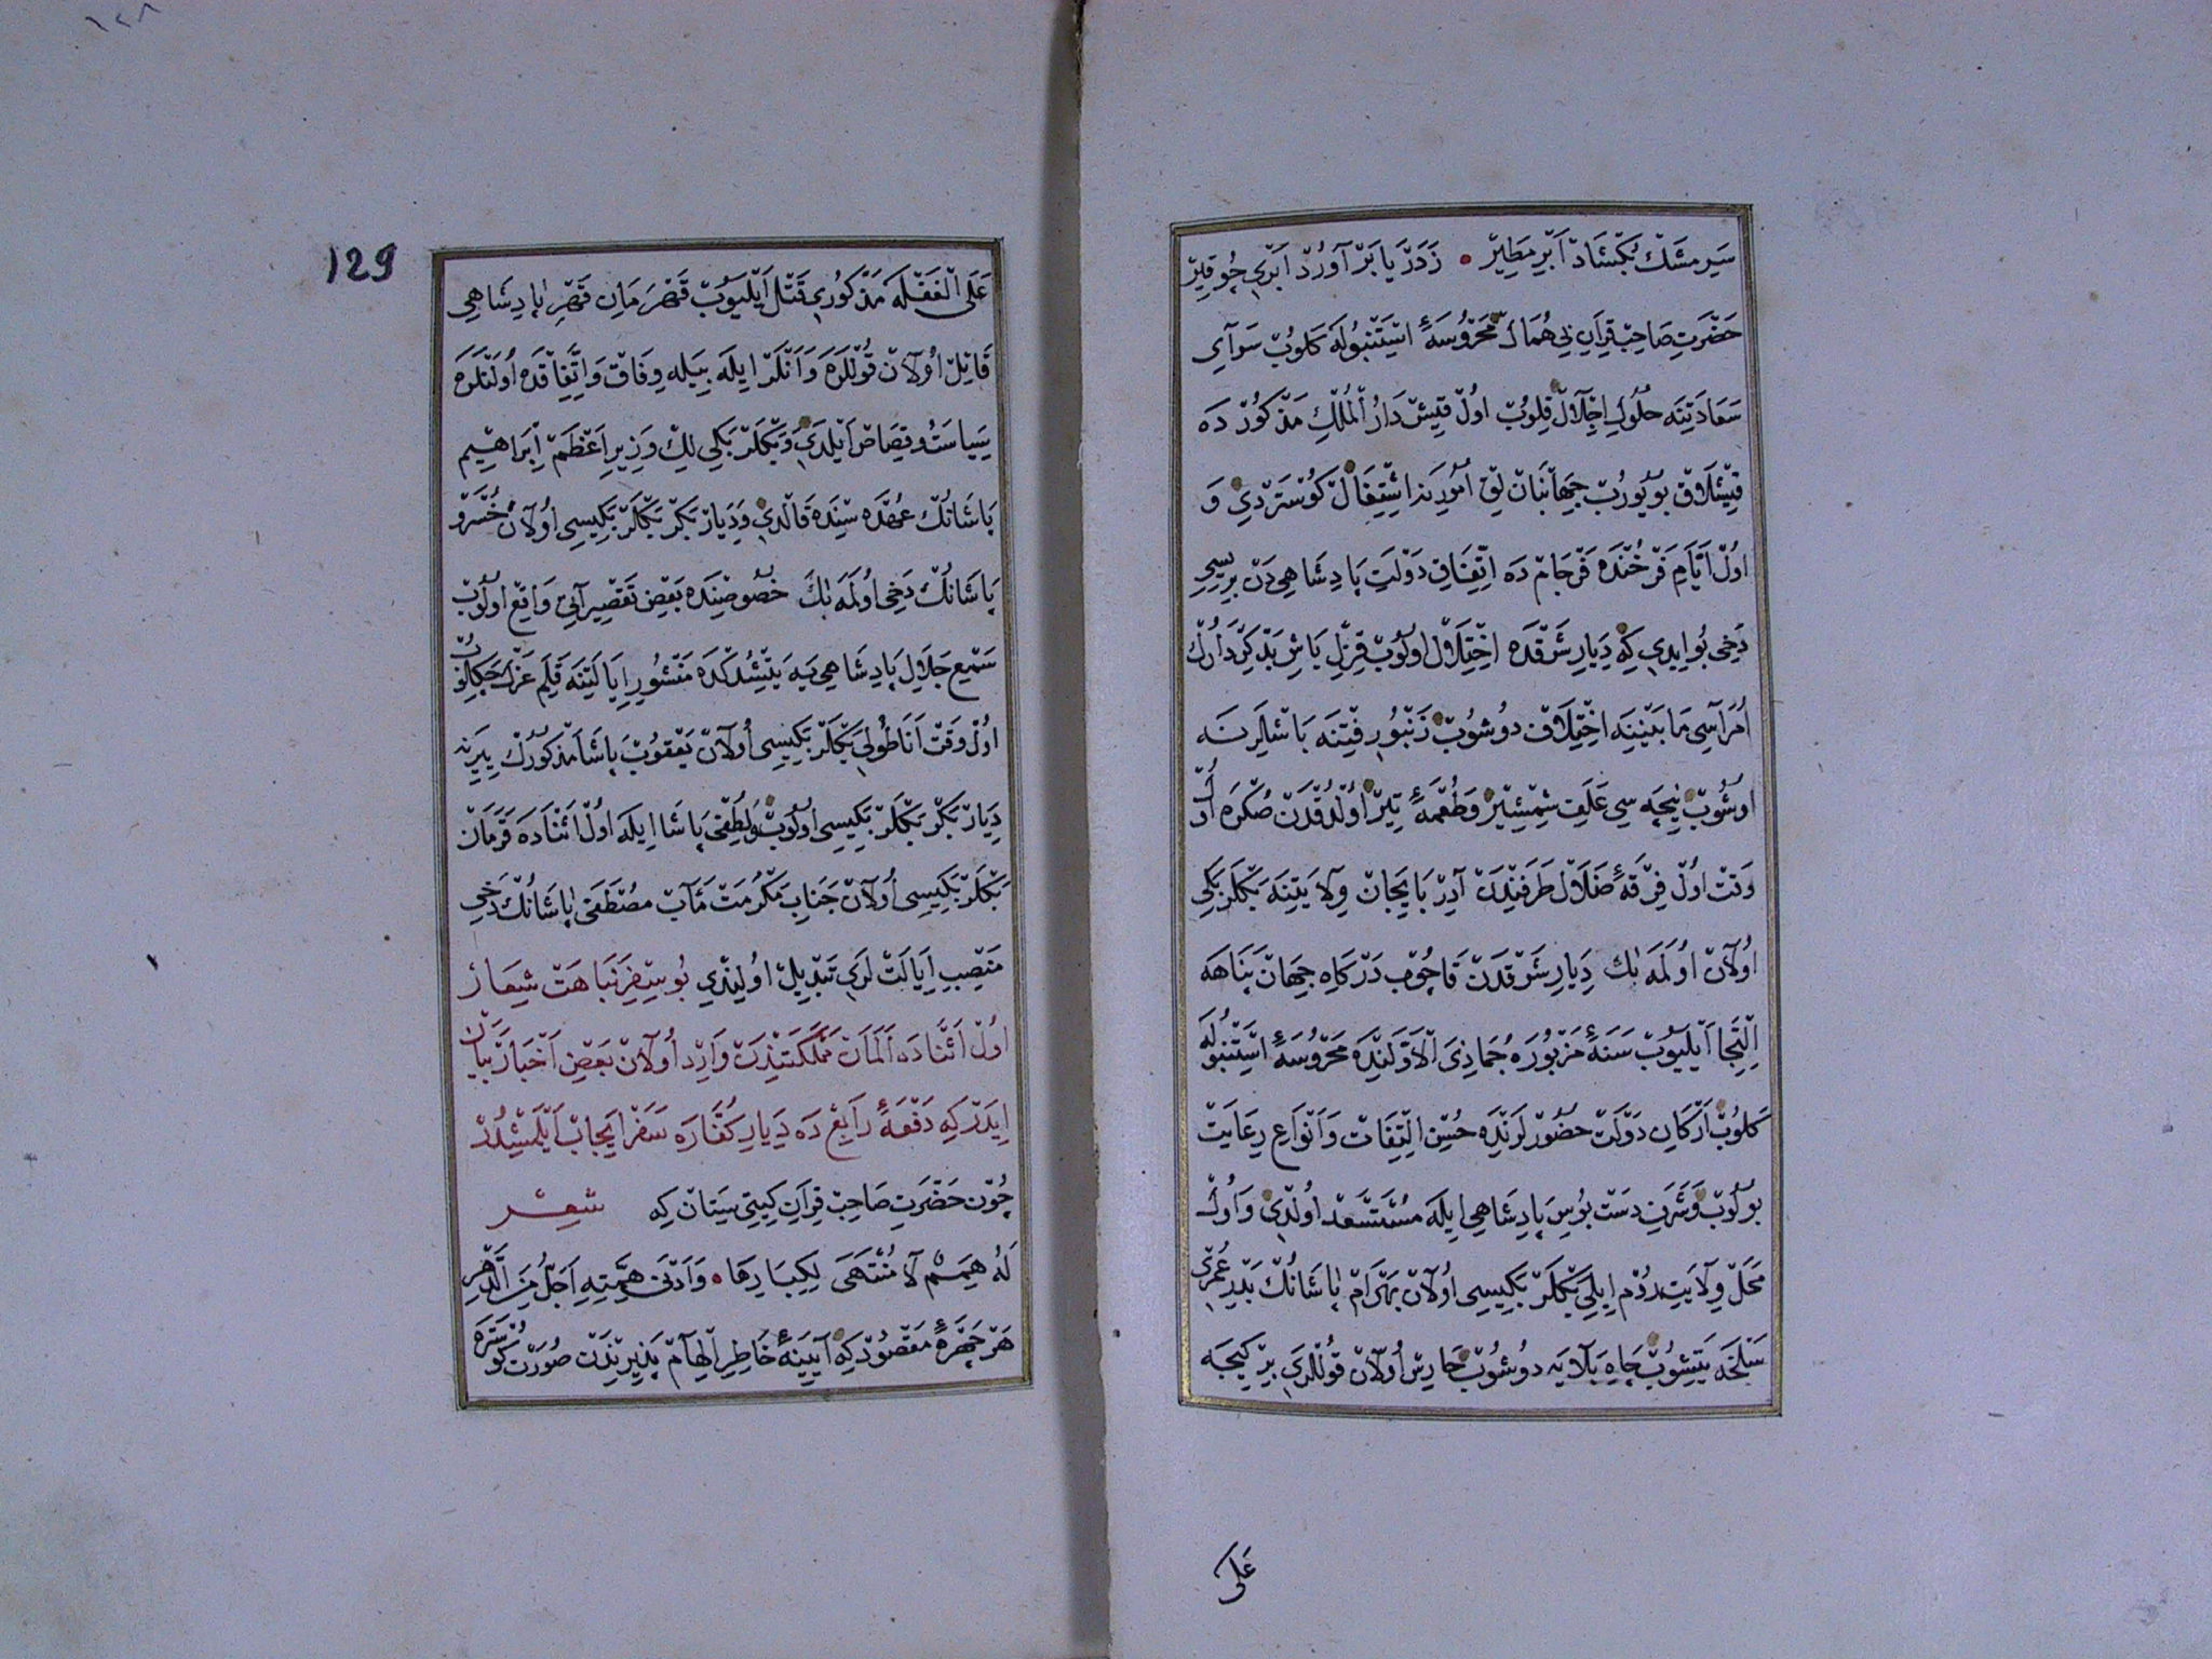 سَيرِ مشَكْ بُكْشَادْ اَبْرِ مَطِيرْ • زَدَرْيَا بَرْ آوُرْدْ اَبْرِى چُو قِيرْ
حَضْرَتِ صَاحِبْ قِرَانِ بِى هُمَالْ مَحْرُوسَۀِ اسْتَنْبُولَه كَلوُبْ سَرَاىِ
سَعَادَتِنَه حُلُولِ اِجْلَالْ قِلوُبْ اوُلْ قِيشْ دَارُ الْمُلْكِ مَذْكُورْدَه
قِيشْلَاقْ بوُيوُرُبْ جِهَانْبَانْ لِقْ اُمُورِينَه اِشْتِغَالْ كوُسْتَرْدِى وَ
اوُلْ اَيَّامِ فَرْخُنْدَه فَرْجَامْ دَه اِتِّفَاقِ دَوْلَتِ پَادِشَاهِى دَنْ بِرِيسِى
دَخِى بُو ايدِى كِه دِيَارِ شَرْقْدَه اخْتِلَالْ اولوُبْ قِزِلْ بَاشِ بَدْ كِرْدَارُكْ
اُمَرَاسِى مَا بَيْنِنَه اخْتِلَافْ دوُشوُبْ زَنْبُورِ فِتْنَه بَاشْلَرِنَه
اوشوُبْ نِيجَه سِى عَلَفِ شِمْشِيرْ وَطُعْمَۀِ تِيرْ اوُلْدُقْدَنْ صُكْرَه اُولْ
وَقْتْ اوُلْ فِرْقَۀِ ضَلَالْ طَرَفِنْدَنْ آذِرْبَايجَانْ وِلَايَتِنَه بَكْلَرْبَكِى
اوُلَانْ اوُلَمَه بَكْ دِيَارِ شَرْقدَنْ قَاچوُبْ دَرْكَاهِ جِهَانْ پَنَاهَه
اِلْتِجَا اَيْليوُبْ سَنَۀِ مَزْبُورَه جُمَاذِىَ الْاَوَّلِنْدَه مَحْرُوسَۀِ اسْتَنْبُولَه
كَلوُبْ اَرْكَانِ دَوْلَتْ حضُورْلَرِنْدَه حُسْنِ اِلْتِفَاتْ وَاَنْوَاعِ رِعَايَتْ
بوُلوُبْ وَشَرَفِ دَسْتْ بُوسِ پَادِشَاهِى ايلَه مُسْتَسْعَدْ اوُلْدِى وَاوُلْ
مَحَلْ وِلَايَتِ روُمْ اِيلِى بَكْلَرْ بَكِيسِى اوُلَانْ بَهْرَامْ پَاشَانُكْ بَدْرِ عُمْرِى
سَلْخَه يَتِيشُوبْ چَاهِ بَلَايَه دوُشُوبْ حَارِسْ اوُلَانْ قوُللَرِى بِرْ كِيجَه
عَلَى
129
عَلَى الْغَفْلَه مَذْكُورِى قَتْلْ اَيْليوُبْ قَهْرَمَانِ قَهْرِ پَادِشَاهِى
قَاتِلْ اوُلَانْ قوُللَرَه وَانْلَرْ ايلَه بِيلَه وِفَاقْ وَاتِّفَاقْدَه اوُلَنْلَرَه
سِيَاسَتْ وقِصَاصْ اَيْلَدِى وَبَكْلَرْبَكِى لِكْ وَزِيرِ اَعْظَمْ اِبْرَاهِيمْ
پَاشَانُكْ عُهْدَه سِنْدَه قَالْدِى وَدِيَارْ بَكْرْ بَكْلَرْبَكِيسِى اوُلَانْ خُسْرَوْ
پَاشَانُكْ دَخِى اوُلَمَه بَكْ خصُوصِنْدَه بَعْضِ تَقْصِيرَاتِى وَاقِعْ اولوُبْ
سَمْعِ جَلَالِ پَادِشَاهِى يَه يَتِيشْدُكْدَه مَنْشُورِ اِيَالَتِنَه قَلَمِ عَزْلْ چَكِلُوبْ
اوُلْ وَقْتْ اَنَاطُولِى بَكْلَرْبَكِيسِى اوُلَانْ يَعْقوُبْ پَاشَا مَذْكُورُكْ يِيرِنَه
دِيَارْ بَكْرْ بَكْلَرْبَكِيسِى اولوُبْ وَلُطْفِى پَاشَا ايلَه اوُلْ اثْنَادَه قَرَمَانْ
بَكْلَرْبَكِيسِى اوُلَانْ جَنَابِ مَكْرُمَتْ مَآبْ مصْطَفَى پَاشَانُكْ دَخِى
مَنْصِبِ اِيَالَتْ لَرِى تَبْدِيلْ اوُلِنْدِى بُو سِفْرِ نَبَاهَتْ شِعَارْ
اوُلْ اَثْنَادَه اَلَمَانْ مَمْلَكَتِنْدَنْ وَارِدْ اوُلَانْ بَعْضِ اَخْبَارْ بَيَانْ
ايدَرْ كِه دَفْعَۀِ رَابِعْ دَه دِيَارِ كُفَّارَه سَفَرْ ايجَابْ اَيْلَمِشْدُرْ
چُونْ حَضْرَتِ صَاحِبْ قِرَانِ كِيتِى سِتَانْ كِه شعر
لَهُ هِمَمٌ لَا مُنْتَهَى لِكِبَارِهَا • وَاَدْنَى هِمَّتِهِ اَجَلُّ مِنَ الدَّهْرِ
هَرْ چِهْرَۀِ مَقْصُودْ كِه آيِينَۀِ خَاطِرِ اِلْهَامْ پَذِيرِنْدَنْ صُورَتْ كوُسْتَرَه